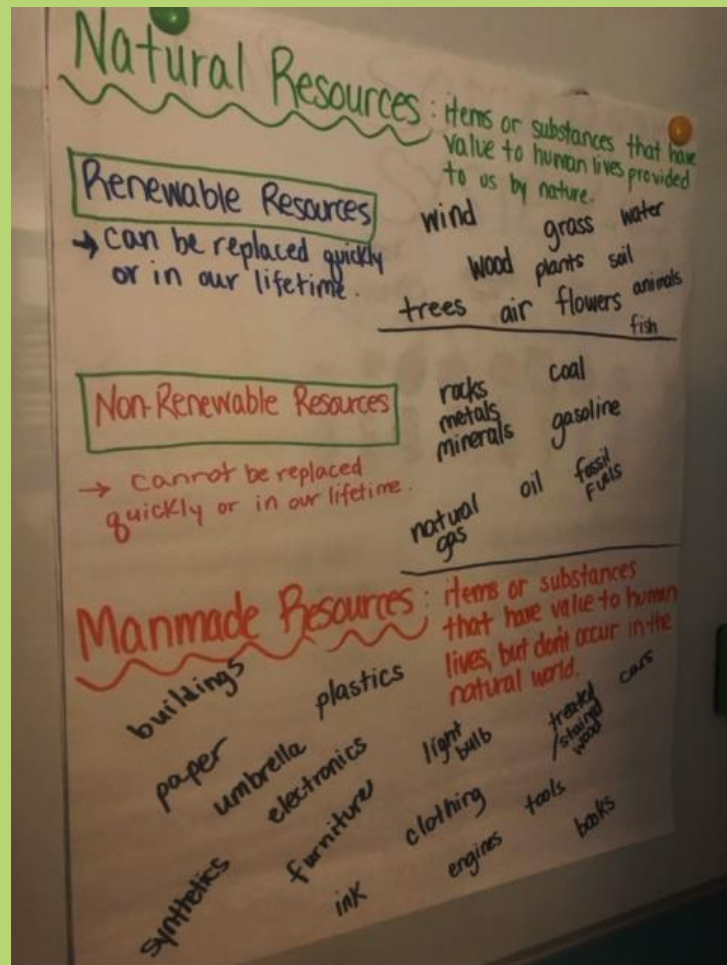 Natural Resources: items or substances that have
value to human lives provided
to us by nature.
Renewable Resources
→ can be replaced quickly
or in our lifetime.
wind grass water
wood plants soil
trees air flowers animals
fish
Non-Renewable Resources
→ cannot be replaced
quickly or in our lifetime.
rocks coal
metals
minerals gasoline
natural
gas
oil
fossil
fuels
Manmade Resources: items or substances
that have value to human
lives, but don't occur in the
natural world.
buildings plastics
paper umbrella electronics
light
bulb
treated
/stained
wood
cars
synthetics furniture clothing tools
ink engines books